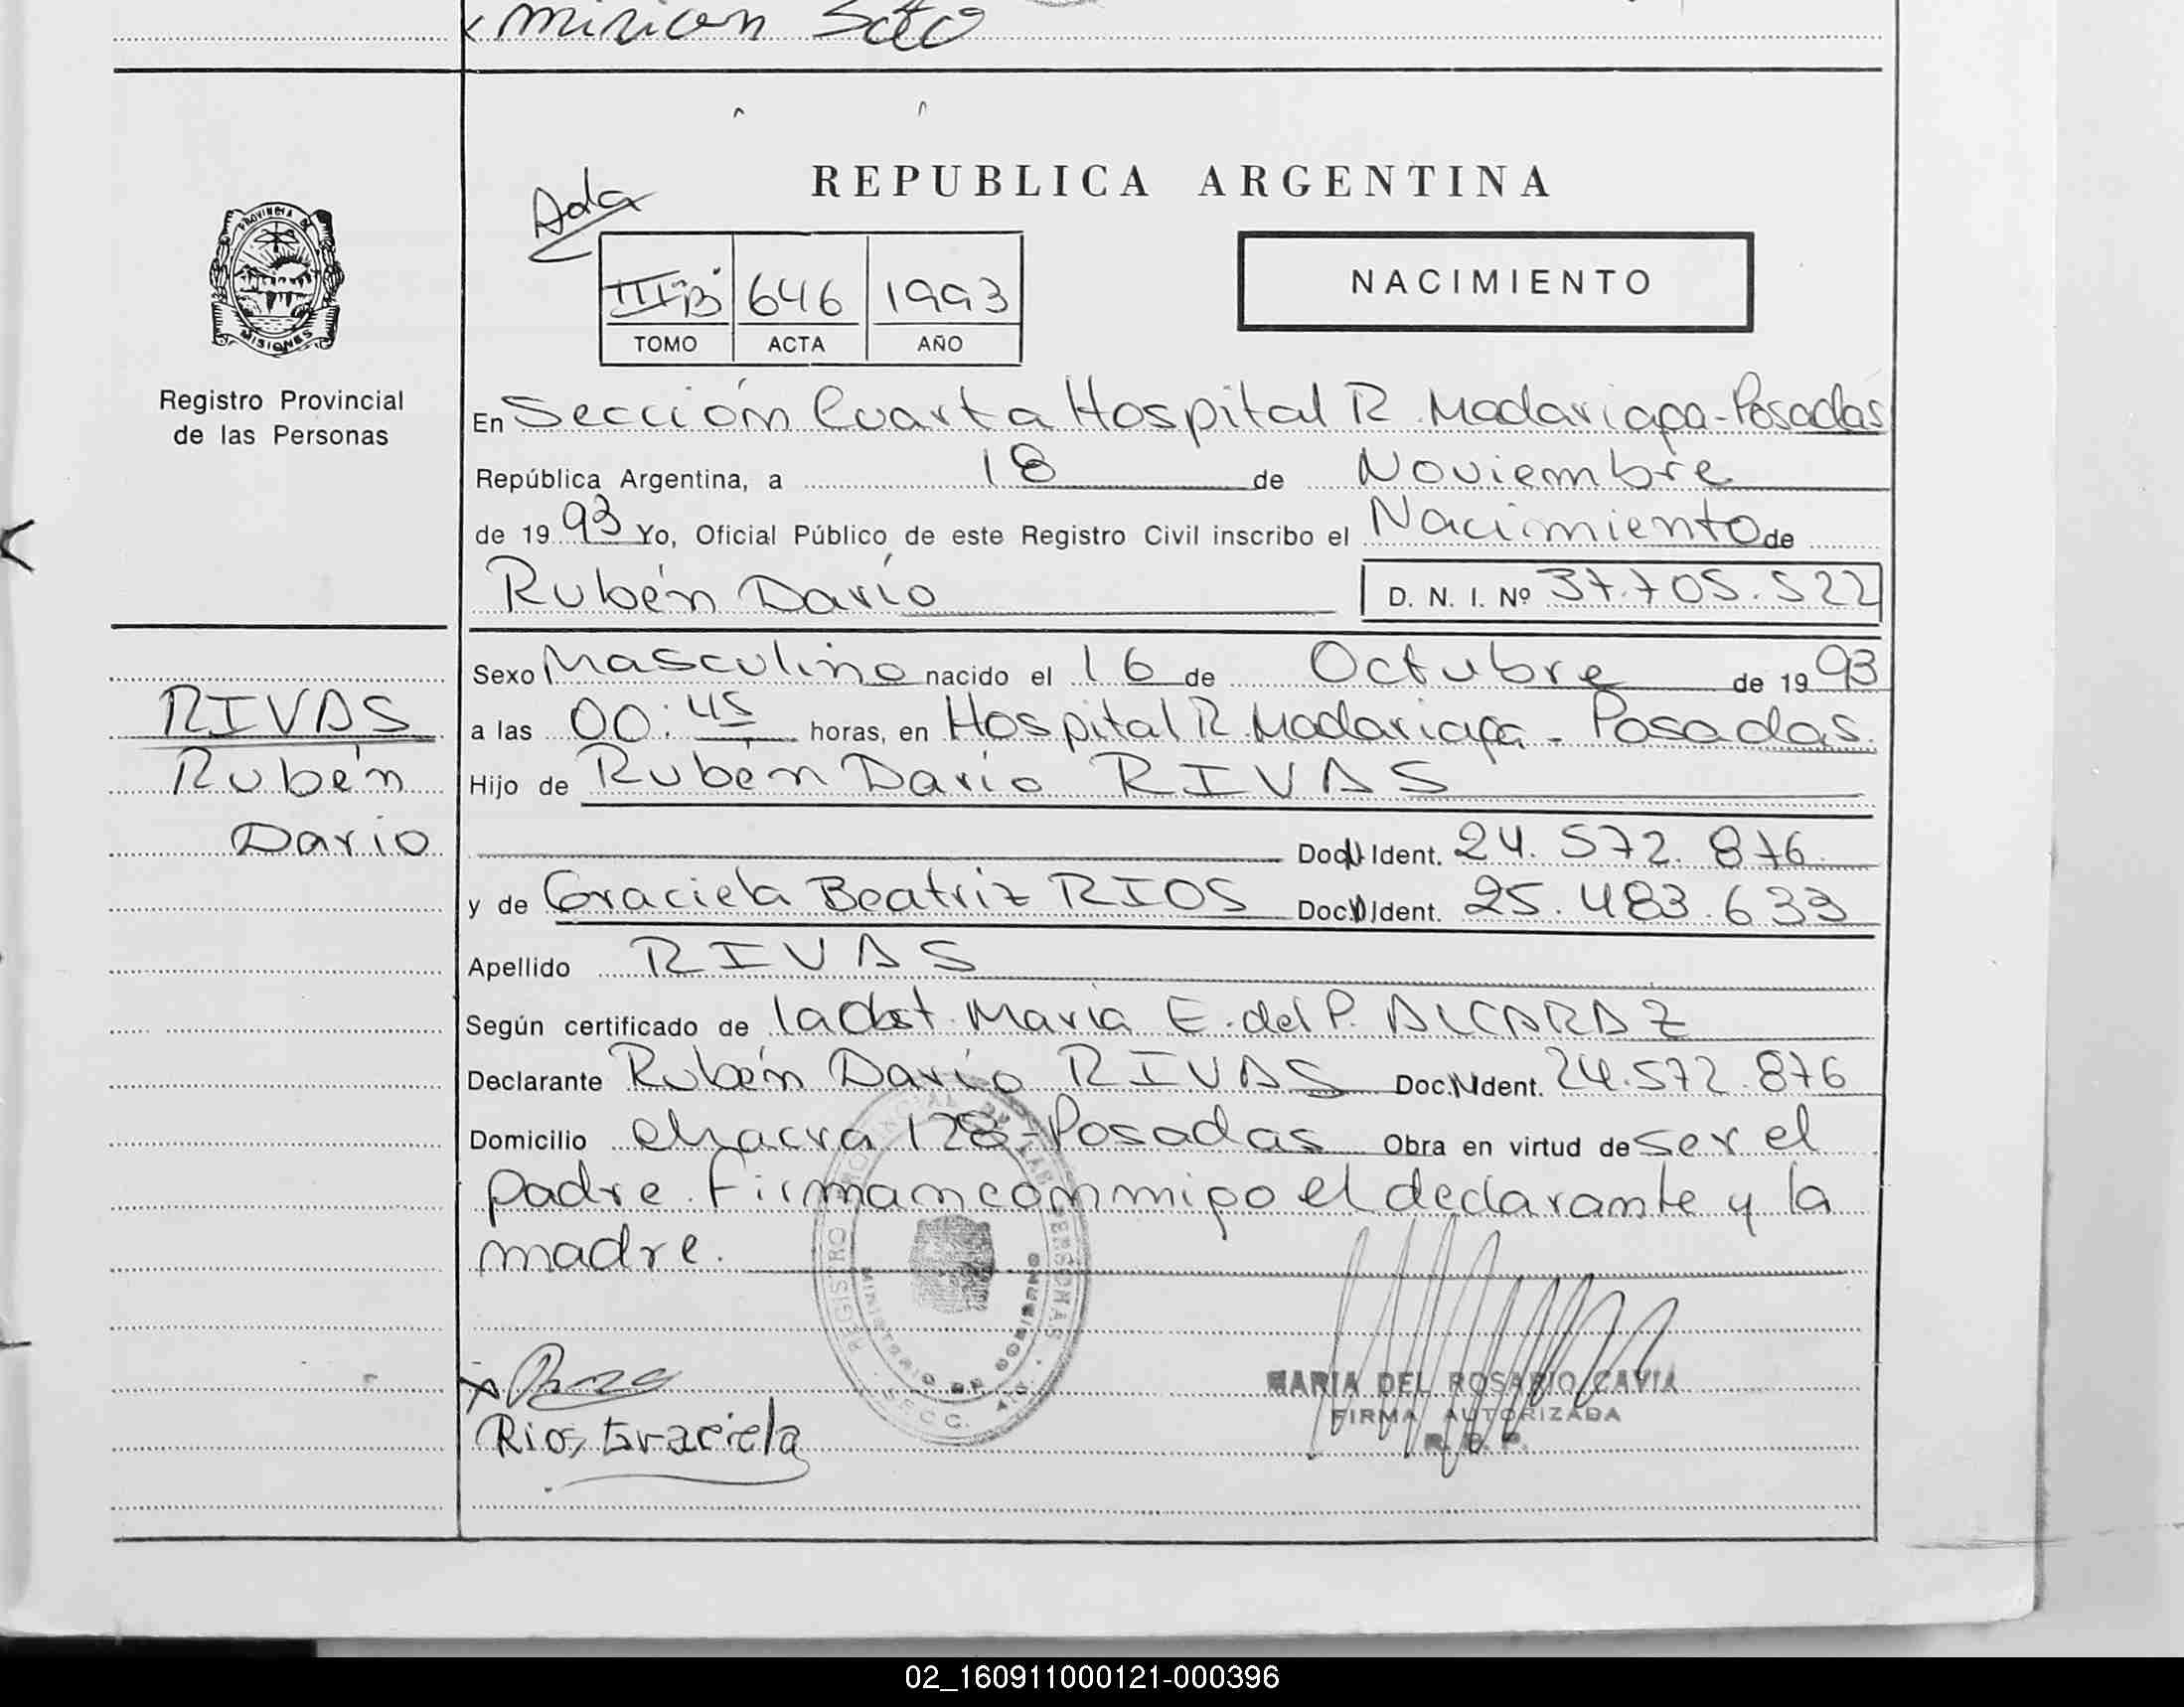 mirian Soto
REPUBLICA ARGENTINA
Ada
PROVINCIA DE
MISIONES
III"B" 646 1993
TOMO ACTA AÑO
NACIMIENTO
Registro Provincial
de las Personas
En Sección Cuarta Hospital R. Madariaga-Posadas
República Argentina, a 18 de Noviembre
de 1993 Yo, Oficial Público de este Registro Civil inscribo el Nacimiento de
Rubén Darío D. N. I. Nº 37.705.522
Sexo Masculino nacido el 16 de Octubre de 1993
a las 00:45 horas, en Hospital R. Madariaga - Posadas.
Hijo de Rubén Darío RIVAS
Doc. Ident. 24.572.876
y de Graciela Beatriz RIOS Doc. Ident. 25.483.633
Apellido RIVAS
Según certificado de la Obst. María E. del P. ALCARAZ
Declarante Rubén Darío RIVAS Doc. Ident. 24.572.876
Domicilio chacra 128-Posadas Obra en virtud de ser el
padre. Firman conmigo el declarante y la
madre.
RIVAS
Rubén
Darío
REGISTRO PROVINCIAL DE LAS PERSONAS
MINISTERIO DE GOBIERNO
SECC. 4ta.
Rios, Graciela
MARIA DEL ROSARIO CAVIA
FIRMA AUTORIZADA
R. P. P.
02_160911000121-000396